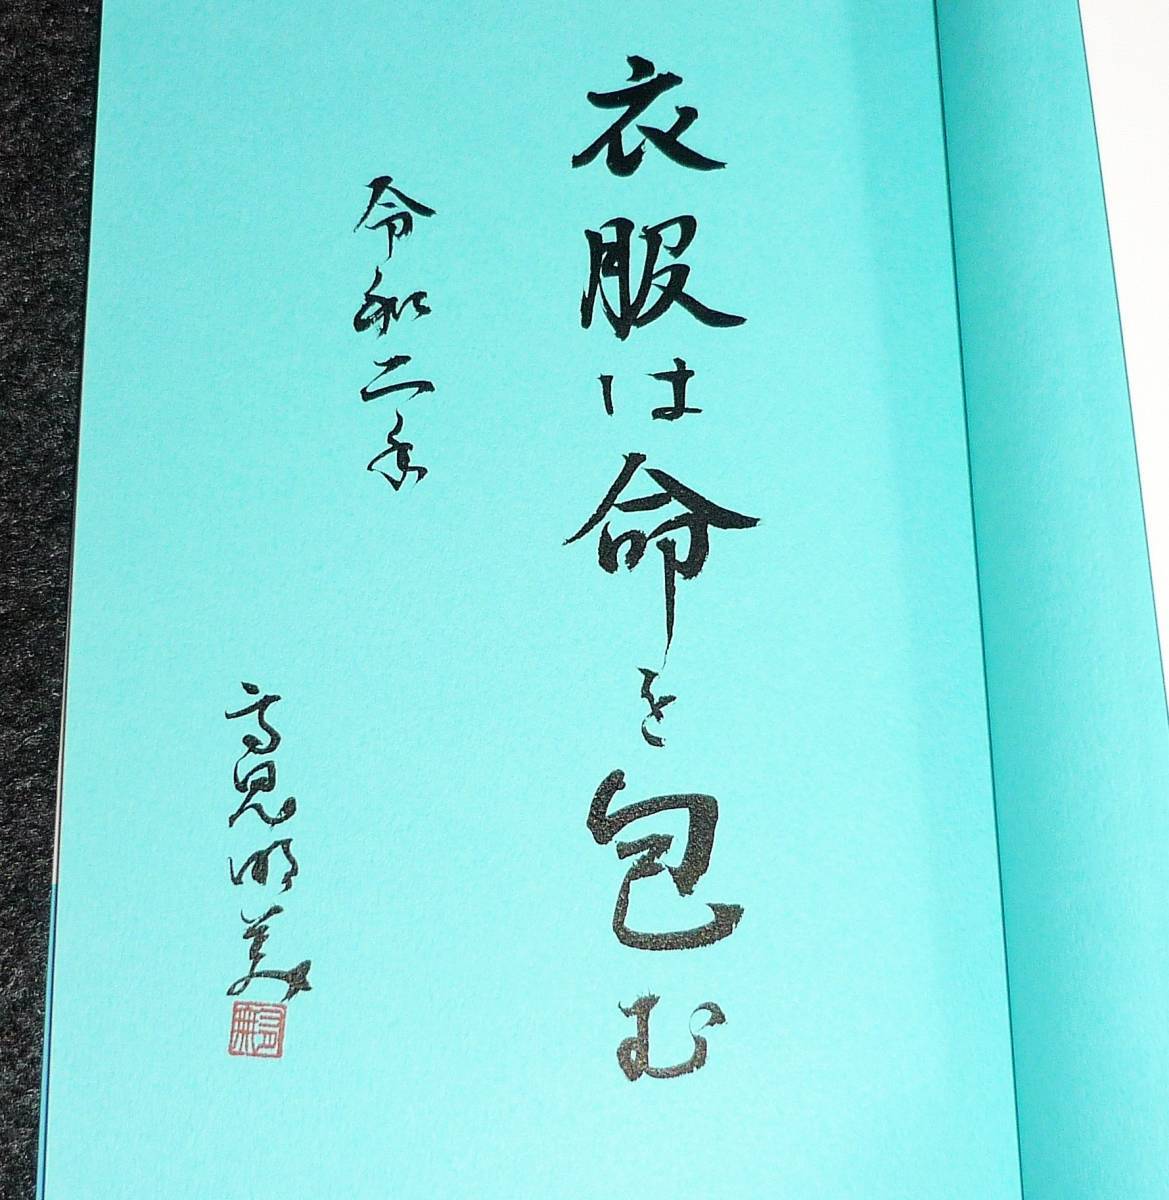 衣服は命を包む
令和二年
高見明美